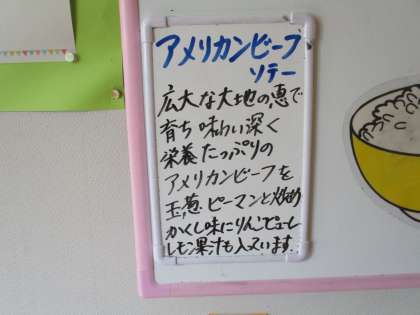 アメリカンビーフ
ソテー
広大な大地の恵で
育ち味わい深く
栄養たっぷりの
アメリカンビーフを
玉葱、ピーマンと炒め
かくし味にりんごピューレ
レモン果汁も入っています。